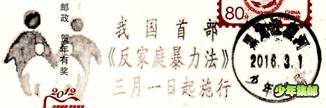 邮政 贺年有奖
2012
我国首部
《反家庭暴力法》
三月一日起施行
80分
2016.3.1
少年集邮